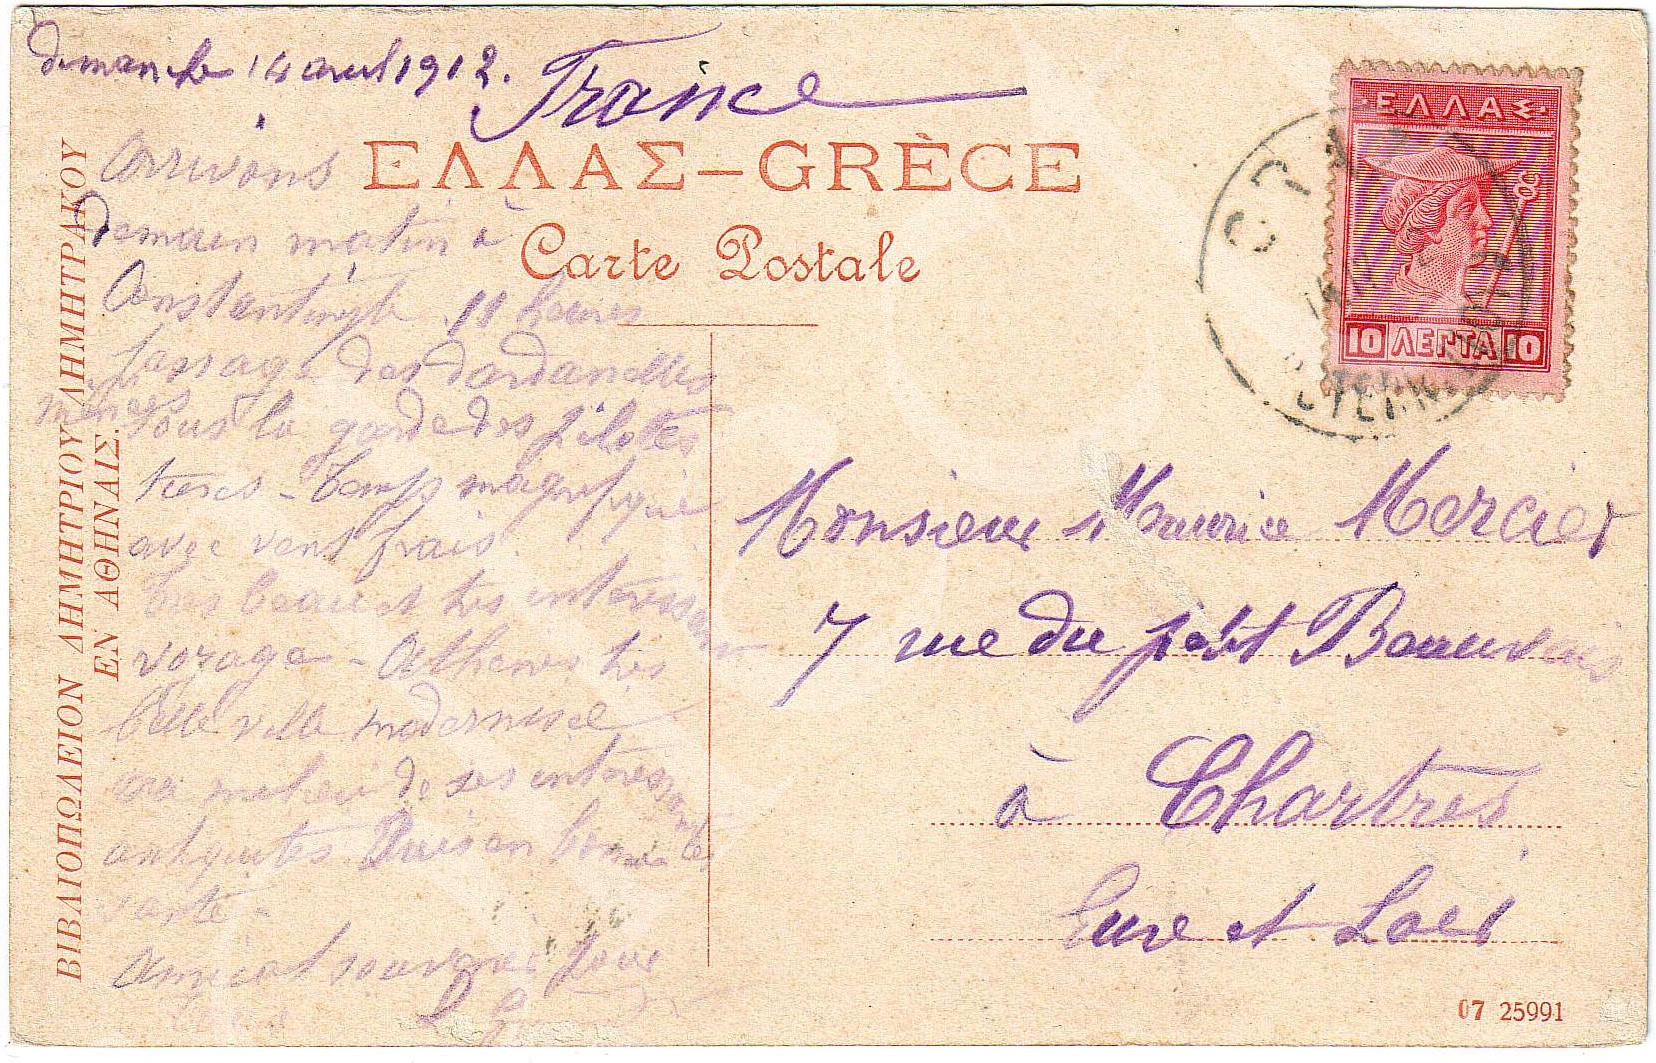 dimanche 14 avril 1912.
France
ΕΛΛΑΣ–GRÈCE
Carte Postale
ΕΛΛΑΣ
10 ΛΕΠΤΑ 10
Arrivons
Demain matin à
Constantinople 11 heures
passage des dardanelles
sous la garde des pilotes
turcs – temps magnifique
avec vent frais
très beau et très intéressant
voyage – Athènes très
belle ville modernisée
au milieu de ses intéressantes
antiquités Suis en bonne
santé –
amical souvenir pour
tous
Monsieur Maurice Mercier
7 rue du petit Beauvais
à Chartres
Eure et Loir
ΒΙΒΛΙΟΠΩΛΕΙΟΝ ΔΗΜΗΤΡΙΟΥ ΔΗΜΗΤΡΑΚΟΥ
ΕΝ ΑΘΗΝΑΙΣ.
07 25991